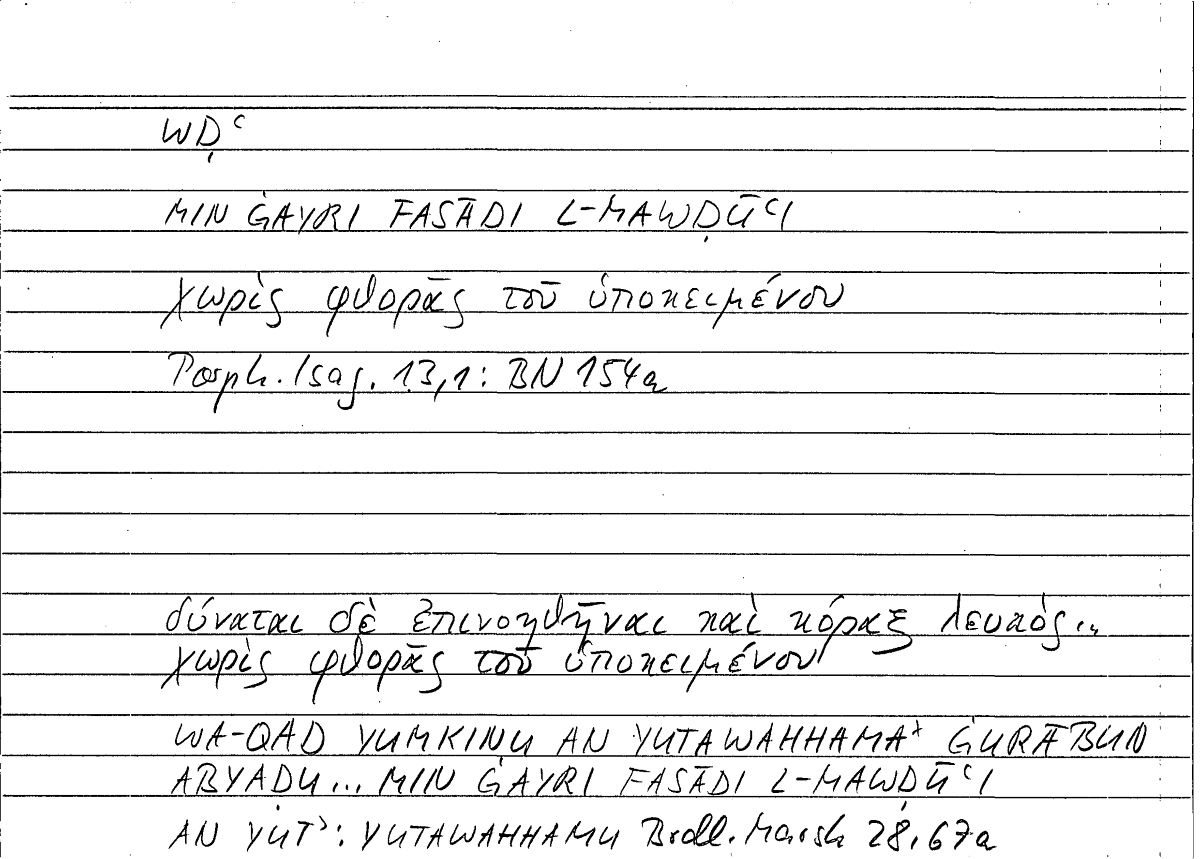 WḌʿ
MIN ĠAYRI FASĀDI L-MAWḌŪʿI
χωρὶς φθορᾶς τοῦ ὑποκειμένου
Porph. Isag. 13,1: BN 154a
δύναται δὲ ἐπινοηθῆναι καὶ κόραξ λευκός..
χωρὶς φθορᾶς τοῦ ὑποκειμένου
WA-QAD YUMKINU AN YUTAWAHHAMAʾ ĠURĀBUN
ABYAḌU... MIN ĠAYRI FASĀDI L-MAWḌŪʿI
AN YUTʾ: YUTAWAHHAMU Bodl. Marsh 28,67a